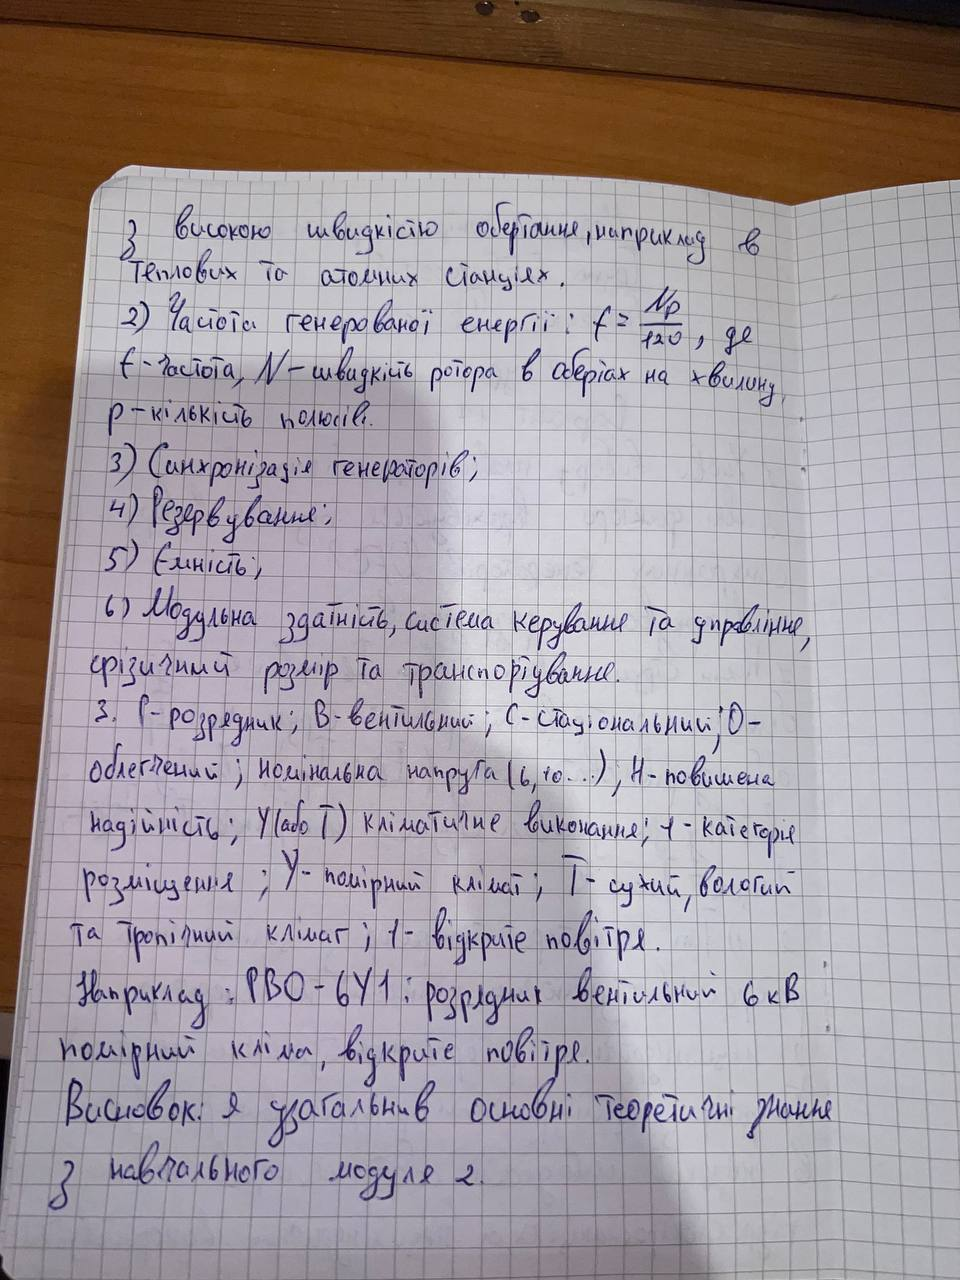 з високою швидкістю обертання, наприклад в
теплових та атомних станціях.
2) Частота генерованої енергії: f = Np/120, де
f - частота, N - швидкість ротора в обертах на хвилину,
p - кількість полюсів.
3) Синхронізація генераторів;
4) Резервування;
5) Ємність;
6) Модульна здатність, система керування та управління,
фізичний розмір та транспортування.
3. Р - розрядник; В - вентильний; С - стаціональний; О -
облегчений; номінальна напруга (6, 10...); Н - повишена
надійність; У(або Т) кліматичне виконання; 1 - категорія
розміщення; У - помірний клімат; Т - сухий, вологий
та тропічний клімат; 1 - відкрите повітря.
Наприклад: РВО - 6У1: розрядник вентильний 6 кВ
помірний кліма, відкрите повітря.
Висновок: я узагальнив основні теоретичні знання
з навчального модуля 2.